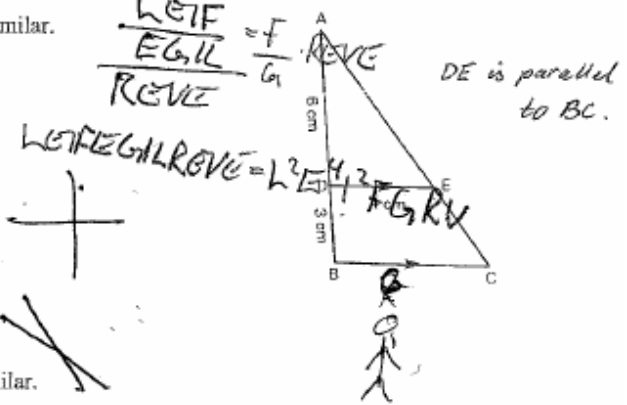 milar.
LEIF
EGIL
REVE
= F
G
. REVE
A
DE is parallel
to BC.
6 cm
LEIFEGILREVE = L²E⁴I²FGRV
E
3 cm
B
C
ilar.